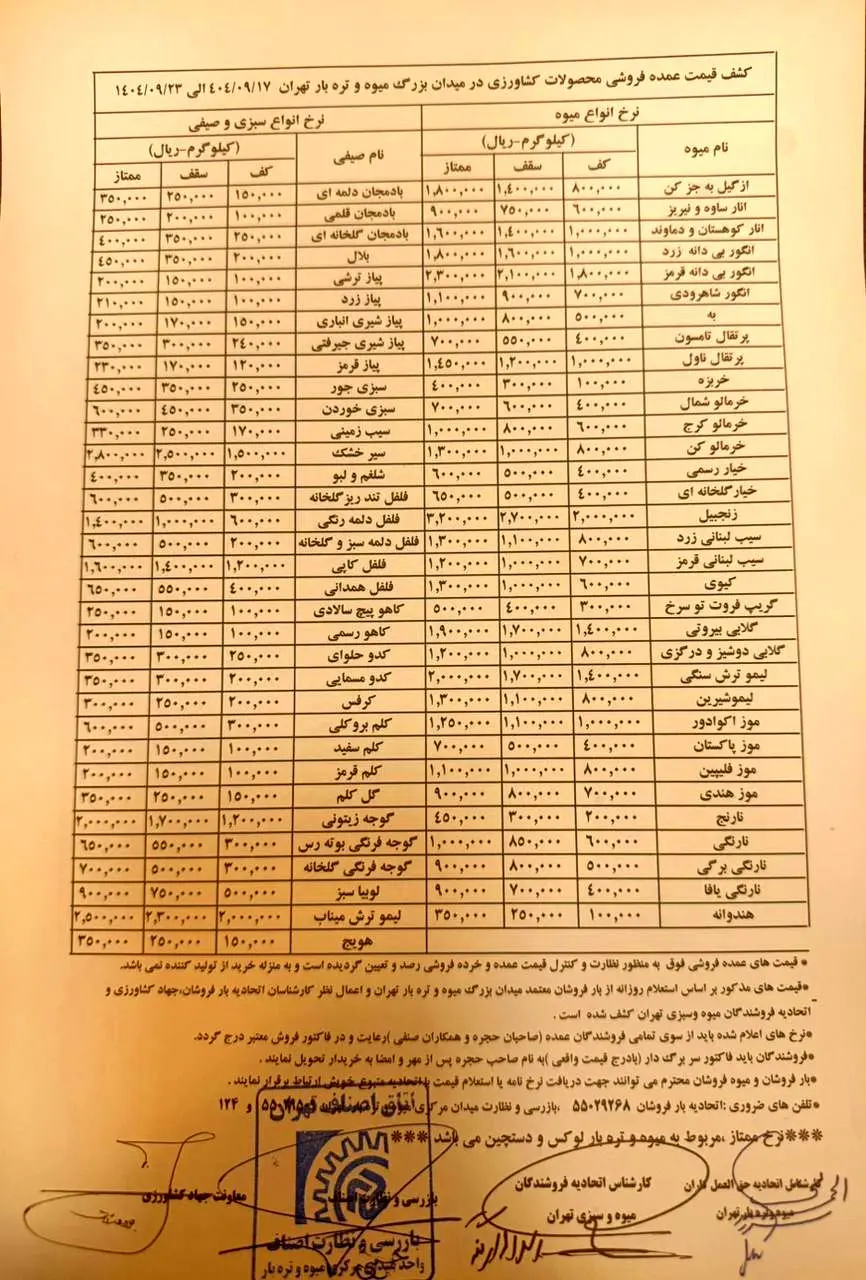 کشف قیمت عمده فروشی محصولات کشاورزی در میدان بزرگ میوه و تره بار تهران ۴۰٤/۰۹/۱۷ الی ۱٤۰٤/۰۹/۲۳
نرخ انواع میوه نرخ انواع سبزی و صیفی
نام میوه (کیلوگرم-ریال) نام صیفی (کیلوگرم-ریال)
کف سقف ممتاز کف سقف ممتاز
ازگیل به جز کن ۸۰۰,۰۰۰ ۱,٤۰۰,۰۰۰ ۱,۸۰۰,۰۰۰ بادمجان دلمه ای ۱۵۰,۰۰۰ ۲۵۰,۰۰۰ ۳۵۰,۰۰۰
انار ساوه و نیریز ۶۰۰,۰۰۰ ۷۵۰,۰۰۰ ۹۰۰,۰۰۰ بادمجان قلمی ۱۰۰,۰۰۰ ۲۰۰,۰۰۰ ۲۵۰,۰۰۰
انار کوهستان و دماوند ۱,۰۰۰,۰۰۰ ۱,٤۰۰,۰۰۰ ۱,۶۰۰,۰۰۰ بادمجان گلخانه ای ۲۵۰,۰۰۰ ۳۵۰,۰۰۰ ٤۰۰,۰۰۰
انگور بی دانه زرد ۱,۰۰۰,۰۰۰ ۱,۶۰۰,۰۰۰ ۱,۸۰۰,۰۰۰ بلال ۲۰۰,۰۰۰ ۳۵۰,۰۰۰ ٤۵۰,۰۰۰
انگور بی دانه قرمز ۱,۸۰۰,۰۰۰ ۲,۱۰۰,۰۰۰ ۲,۳۰۰,۰۰۰ پیاز ترشی ۱۰۰,۰۰۰ ۱۵۰,۰۰۰ ۲۰۰,۰۰۰
انگور شاهرودی ۷۰۰,۰۰۰ ۹۰۰,۰۰۰ ۱,۱۰۰,۰۰۰ پیاز زرد ۱۰۰,۰۰۰ ۱۵۰,۰۰۰ ۲۱۰,۰۰۰
به ۵۰۰,۰۰۰ ۸۰۰,۰۰۰ ۱,۰۰۰,۰۰۰ پیاز شیری انباری ۱۵۰,۰۰۰ ۱۷۰,۰۰۰ ۲۰۰,۰۰۰
پرتقال تامسون ٤۰۰,۰۰۰ ۵۵۰,۰۰۰ ۷۰۰,۰۰۰ پیاز شیری جیرفتی ۲٤۰,۰۰۰ ۳۰۰,۰۰۰ ۳۵۰,۰۰۰
پرتقال ناول ۱,۰۰۰,۰۰۰ ۱,۲۰۰,۰۰۰ ۱,٤۵۰,۰۰۰ پیاز قرمز ۱۲۰,۰۰۰ ۱۷۰,۰۰۰ ۲۳۰,۰۰۰
خربزه ۱۰۰,۰۰۰ ۳۰۰,۰۰۰ ٤۰۰,۰۰۰ سبزی جور ۲۵۰,۰۰۰ ۳۵۰,۰۰۰ ٤۵۰,۰۰۰
خرمالو شمال ٤۰۰,۰۰۰ ۶۰۰,۰۰۰ ۷۰۰,۰۰۰ سبزی خوردن ۳۵۰,۰۰۰ ٤۵۰,۰۰۰ ۶۰۰,۰۰۰
خرمالو کرج ۶۰۰,۰۰۰ ۸۰۰,۰۰۰ ۱,۰۰۰,۰۰۰ سیب زمینی ۱۷۰,۰۰۰ ۲۵۰,۰۰۰ ۳۳۰,۰۰۰
خرمالو کن ۸۰۰,۰۰۰ ۱,۰۰۰,۰۰۰ ۱,۳۰۰,۰۰۰ سیر خشک ۱,۵۰۰,۰۰۰ ۲,۵۰۰,۰۰۰ ۲,۸۰۰,۰۰۰
خیار رسمی ٤۰۰,۰۰۰ ۵۰۰,۰۰۰ ۶۰۰,۰۰۰ شلغم و لبو ۲۰۰,۰۰۰ ۳۵۰,۰۰۰ ٤۰۰,۰۰۰
خیارگلخانه ای ٤۰۰,۰۰۰ ۵۰۰,۰۰۰ ۶۵۰,۰۰۰ فلفل تند ریزگلخانه ۳۰۰,۰۰۰ ۵۰۰,۰۰۰ ۶۰۰,۰۰۰
زنجبیل ۲,۰۰۰,۰۰۰ ۲,۷۰۰,۰۰۰ ۳,۲۰۰,۰۰۰ فلفل دلمه رنگی ۶۰۰,۰۰۰ ۱,۰۰۰,۰۰۰ ۱,٤۰۰,۰۰۰
سیب لبنانی زرد ۸۰۰,۰۰۰ ۱,۱۰۰,۰۰۰ ۱,۳۰۰,۰۰۰ فلفل دلمه سبز و گلخانه ۲۰۰,۰۰۰ ۵۰۰,۰۰۰ ۶۰۰,۰۰۰
سیب لبنانی قرمز ۷۰۰,۰۰۰ ۱,۰۰۰,۰۰۰ ۱,۲۰۰,۰۰۰ فلفل کاپی ۱,۲۰۰,۰۰۰ ۱,٤۰۰,۰۰۰ ۱,۶۰۰,۰۰۰
کیوی ۶۰۰,۰۰۰ ۱,۰۰۰,۰۰۰ ۱,۳۰۰,۰۰۰ فلفل همدانی ٤۰۰,۰۰۰ ۵۵۰,۰۰۰ ۶۵۰,۰۰۰
گریپ فروت تو سرخ ۳۰۰,۰۰۰ ٤۰۰,۰۰۰ ۵۰۰,۰۰۰ کاهو پیچ سالادی ۱۰۰,۰۰۰ ۱۵۰,۰۰۰ ۲۵۰,۰۰۰
گلابی بیروتی ۱,٤۰۰,۰۰۰ ۱,۷۰۰,۰۰۰ ۱,۹۰۰,۰۰۰ کاهو رسمی ۱۰۰,۰۰۰ ۱۵۰,۰۰۰ ۲۰۰,۰۰۰
گلابی دوشیز و درگزی ۸۰۰,۰۰۰ ۱,۰۰۰,۰۰۰ ۱,۲۰۰,۰۰۰ کدو حلوای ۲۵۰,۰۰۰ ۳۰۰,۰۰۰ ۳۵۰,۰۰۰
لیمو ترش سنگی ۱,٤۰۰,۰۰۰ ۱,۷۰۰,۰۰۰ ۲,۰۰۰,۰۰۰ کدو مسمایی ۲۰۰,۰۰۰ ۳۰۰,۰۰۰ ۳۵۰,۰۰۰
لیموشیرین ۸۰۰,۰۰۰ ۱,۱۰۰,۰۰۰ ۱,۳۰۰,۰۰۰ کرفس ۲۰۰,۰۰۰ ۲۵۰,۰۰۰ ۳۰۰,۰۰۰
موز اکوادور ۱,۰۰۰,۰۰۰ ۱,۱۰۰,۰۰۰ ۱,۲۵۰,۰۰۰ کلم بروکلی ۳۰۰,۰۰۰ ۵۰۰,۰۰۰ ۶۰۰,۰۰۰
موز پاکستان ٤۰۰,۰۰۰ ۵۰۰,۰۰۰ ۷۰۰,۰۰۰ کلم سفید ۱۰۰,۰۰۰ ۱۵۰,۰۰۰ ۲۰۰,۰۰۰
موز فلیپین ۸۰۰,۰۰۰ ۱,۰۰۰,۰۰۰ ۱,۱۰۰,۰۰۰ کلم قرمز ۱۰۰,۰۰۰ ۱۵۰,۰۰۰ ۲۰۰,۰۰۰
موز هندی ۷۰۰,۰۰۰ ۸۰۰,۰۰۰ ۹۰۰,۰۰۰ گل کلم ۱۵۰,۰۰۰ ۲۵۰,۰۰۰ ۳۵۰,۰۰۰
نارنج ۲۰۰,۰۰۰ ۳۰۰,۰۰۰ ٤۵۰,۰۰۰ گوجه زیتونی ۱,۲۰۰,۰۰۰ ۱,۷۰۰,۰۰۰ ۲,۰۰۰,۰۰۰
نارنگی ۶۰۰,۰۰۰ ۸۵۰,۰۰۰ ۱,۰۰۰,۰۰۰ گوجه فرنگی بوته رس ۳۰۰,۰۰۰ ۵۵۰,۰۰۰ ۶۵۰,۰۰۰
نارنگی برگی ۵۰۰,۰۰۰ ۸۰۰,۰۰۰ ۹۰۰,۰۰۰ گوجه فرنگی گلخانه ۳۰۰,۰۰۰ ۵۰۰,۰۰۰ ۷۰۰,۰۰۰
نارنگی یافا ٤۰۰,۰۰۰ ۷۰۰,۰۰۰ ۹۰۰,۰۰۰ لوبیا سبز ۵۰۰,۰۰۰ ۷۵۰,۰۰۰ ۹۰۰,۰۰۰
هندوانه ۱۰۰,۰۰۰ ۲۵۰,۰۰۰ ۳۵۰,۰۰۰ لیمو ترش میناب ۲,۰۰۰,۰۰۰ ۲,۳۰۰,۰۰۰ ۲,۵۰۰,۰۰۰
هویج ۱۵۰,۰۰۰ ۲۵۰,۰۰۰ ۳۵۰,۰۰۰
* قیمت های عمده فروشی فوق به منظور نظارت و کنترل قیمت عمده و خرده فروشی رصد و تعیین گردیده است و به منزله خرید از تولید کننده نمی باشد.
*قیمت های مذکور بر اساس استعلام روزانه از بار فروشان معتمد میدان بزرگ میوه و تره بار تهران و اعمال نظر کارشناسان اتحادیه بار فروشان،جهاد کشاورزی و
اتحادیه فروشندگان میوه وسبزی تهران کشف شده است .
*نرخ های اعلام شده باید از سوی تمامی فروشندگان عمده (صاحبان حجره و همکاران صنفی )رعایت و در فاکتور فروش معتبر درج گردد.
*فروشندگان باید فاکتور سر برگ دار (بادرج قیمت واقعی )به نام صاحب حجره پس از مهر و امضا به خریدار تحویل نمایند .
*بار فروشان و میوه فروشان محترم می توانند جهت دریافت نرخ نامه یا استعلام قیمت با اتحادیه متبوع خویش ارتباط برقرار نمایند .
*تلفن های ضروری :اتحادیه بار فروشان ۵۵۰۲۹۲۶۸ ،بازرسی و نظارت میدان مرکزی و ۱۲۴
***نرخ ممتاز ،مربوط به میوه و تره بار لوکس و دستچین می باشد ***
اتاق اصناف تهران
کارشناس اتحادیه حق العمل کاران کارشناس اتحادیه فروشندگان بازرسی و نظارت اصناف معاونت جهاد کشاورزی
میوه و تره بار تهران میوه و سبزی تهران
بازرسی و نظارت اصناف
واحد میدان مرکزی میوه و تره بار